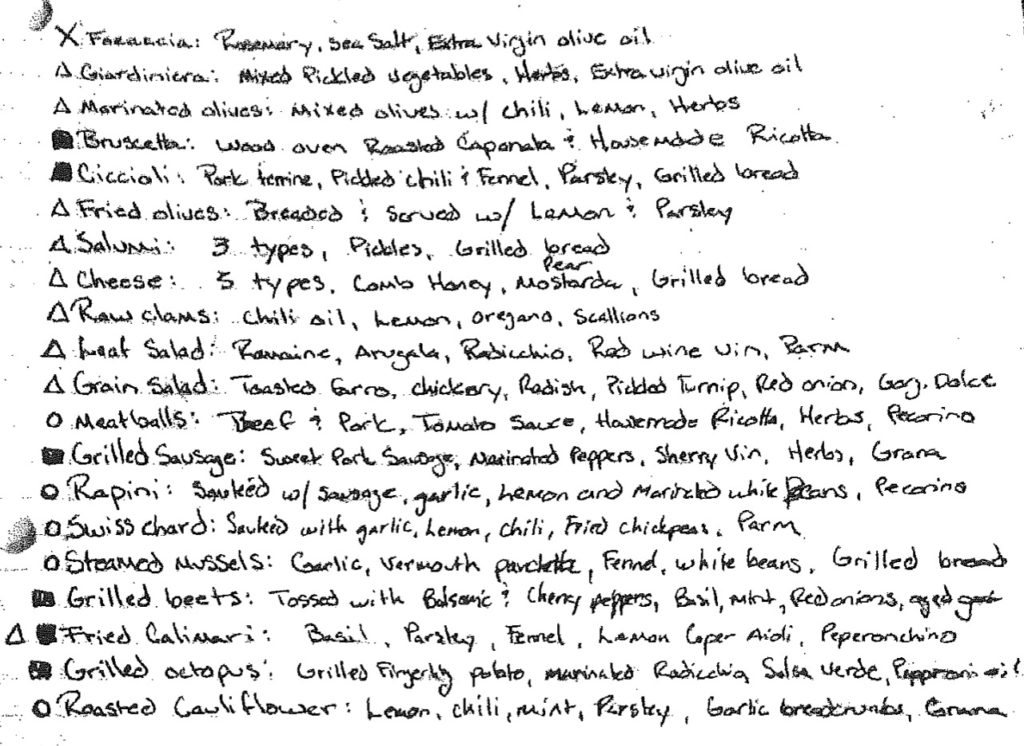 X Focaccia: Rosemary, Sea Salt, Extra Virgin olive oil
△ Giardiniera: Mixed Pickled vegetables, Herbs, Extra virgin olive oil
△ Marinated olives: Mixed olives w/ chili, Lemon, Herbs
■ Bruscetta: Wood oven Roasted Caponata & Housemade Ricotta
■ Ciccioli: Pork terrine, Pickled chili & Fennel, Parsley, Grilled bread
△ Fried olives: Breaded & Served w/ Lemon & Parsley
△ Salumi: 3 types, Pickles, Grilled bread
△ Cheese: 5 types, Comb Honey, Pear Mostarda, Grilled bread
△ Raw clams: Chili oil, Lemon, oregano, Scallions
△ Leaf Salad: Romaine, Arugala, Radicchio, Red wine vin, Parm
△ Grain Salad: Toasted farro, chickory, Radish, Pickled Turnip, Red onion, Gorg. Dolce
O Meatballs: Beef & Pork, Tomato Sauce, Housemade Ricotta, Herbs, Pecorino
■ Grilled Sausage: Sweet Pork Sausage, Marinated Peppers, Sherry Vin, Herbs, Grana
O Rapini: Sautéed w/ sausage, garlic, Lemon and Marinated white Beans, Pecorino
O Swiss chard: Sautéed with garlic, Lemon, Chili, Fried chickpeas, Parm
O Steamed Mussels: Garlic, Vermouth, Fennel, white beans, Grilled bread
■ Grilled beets: Tossed with Balsamic & Cherry peppers, Basil, Mint, Red onions, aged
△ ■ Fried Calimari: Basil, Parsley, Fennel, Lemon Caper Aioli, Peperonchino
■ Grilled octopus: Grilled Fingerling potato, marinated Radicchio, Salsa Verde, oil
O Roasted Cauliflower: Lemon, chili, mint, Parsley, Garlic breadcrumbs, Grana